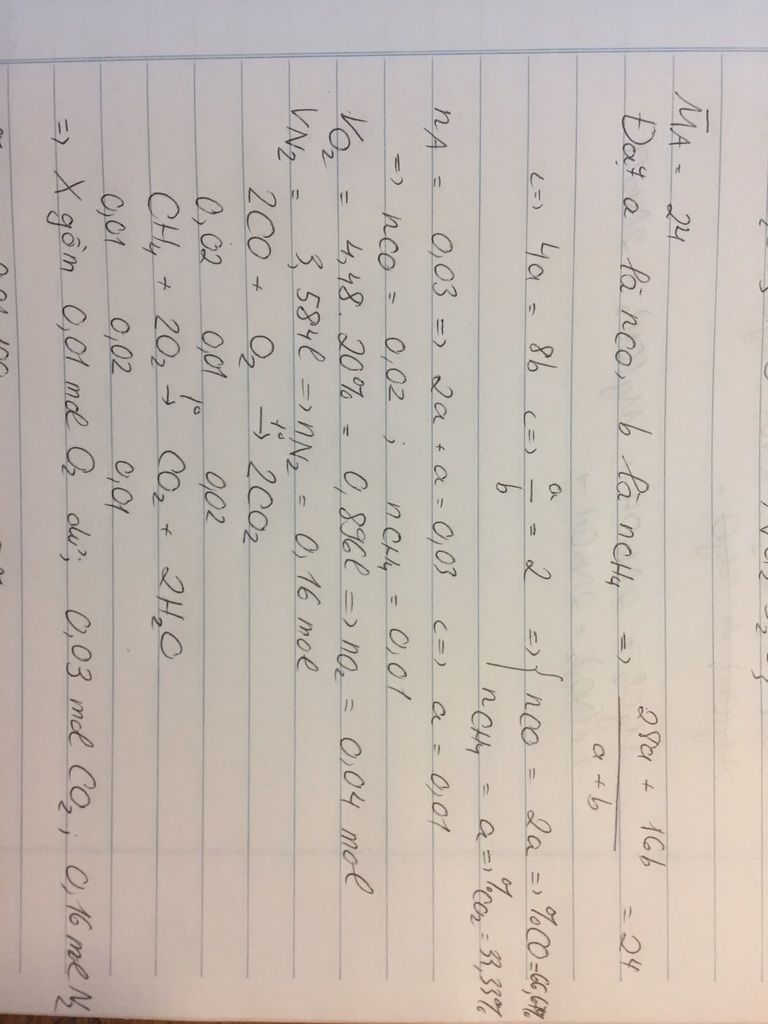 M̄A = 24
Đặt a là nCO, b là nCH₄ => 28a + 16b / a + b = 24
<=> 4a = 8b <=> a / b = 2 => { nCO = 2a => %CO = 66,67%
nCH₄ = a => %CO₂ = 33,33%
nA = 0,03 => 2a + a = 0,03 <=> a = 0,01
=> nCO = 0,02 ; nCH₄ = 0,01
VO₂ = 4,48. 20% = 0,896l => nO₂ = 0,04 mol
VN₂ = 3,584l => nN₂ = 0,16 mol
2CO + O₂ t° → 2CO₂
0,02 0,01 0,02
CH₄ + 2O₂ t° → CO₂ + 2H₂O
0,01 0,02 0,01
=> X gồm 0,01 mol O₂ dư; 0,03 mol CO₂; 0,16 mol N₂